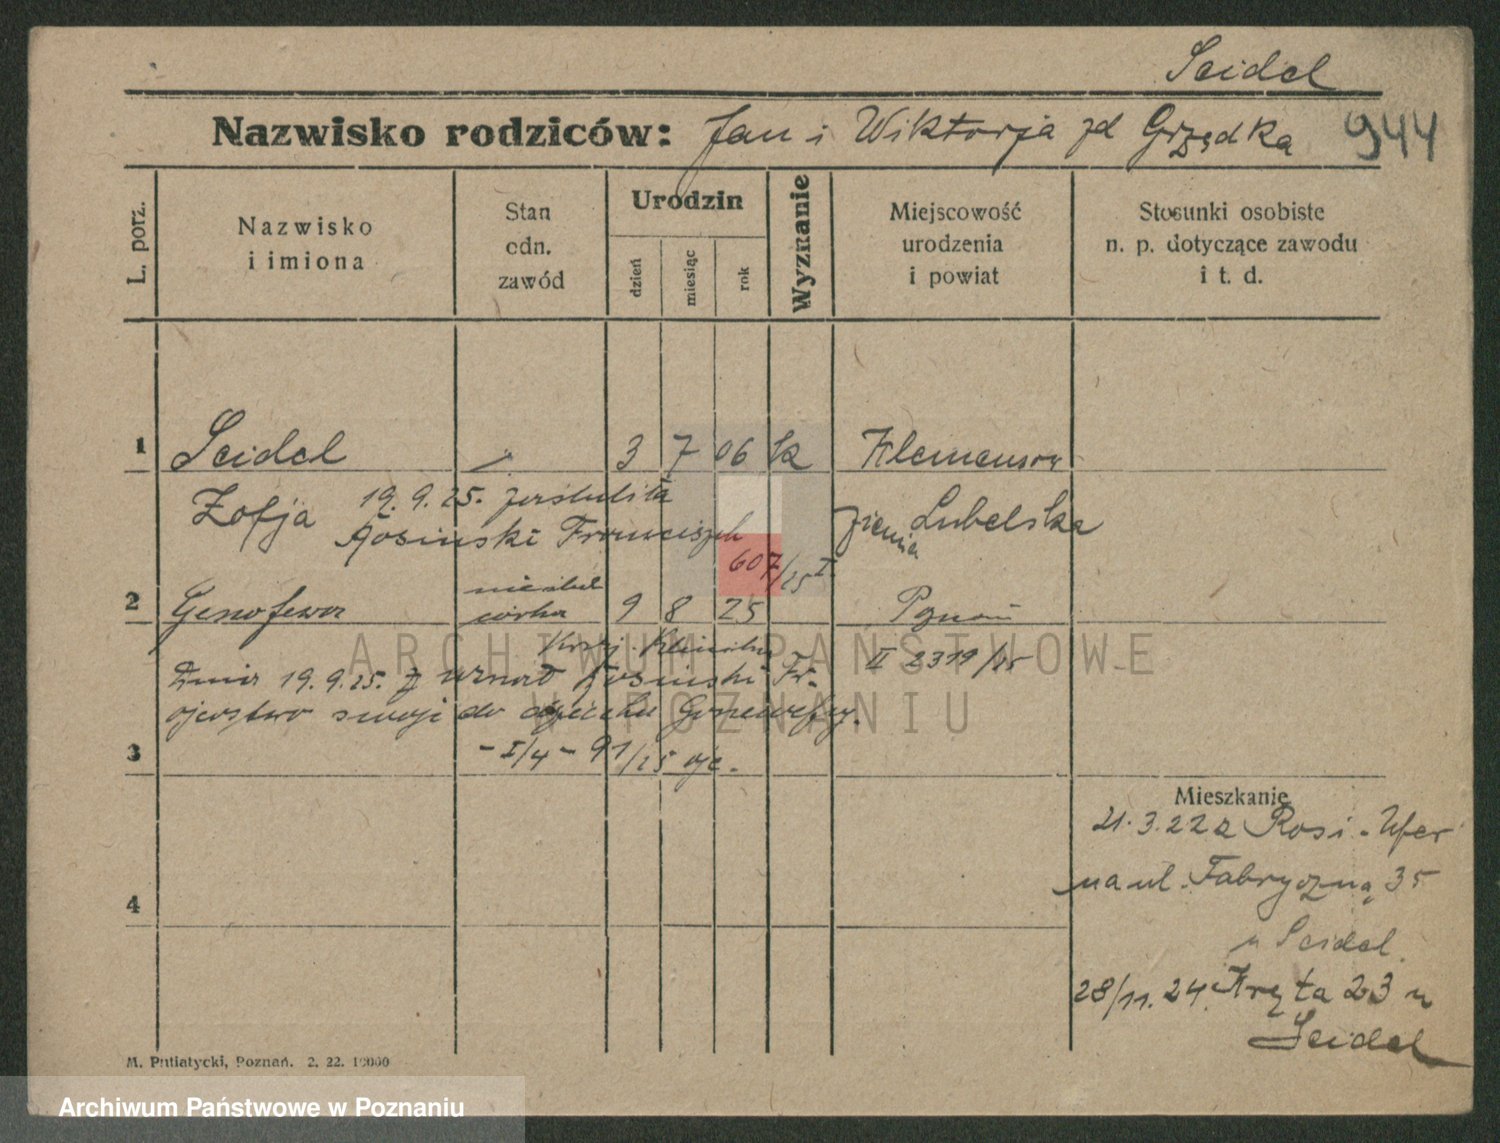 Seidel
Nazwisko rodziców: Jan i Wiktorja zd Grzędka 944
L. porz.
Nazwisko
i imiona
Stan
cdn.
zawód
Urodzin
dzień
miesiąc
rok
Wyznanie
Miejscowość
urodzenia
i powiat
Stosunki osobiste
n. p. dotyczące zawodu
i t. d.
1 Seidel 3 7 06 k
Zofja 19. 9. 25. Lubelska
Franciszek ziemia
607/25 I
2 Genofewa córka 9 8 25
II 2319/25
19.9.25. z Fr.
ojcostwo swoje do dziecka
3 - I/4 - 91/25 ojc.
Mieszkanie
21.3.22 z Rosi-Ufer
na ul. Fabryczną 35
u Seidel.
4
28/11. 24. Kręta 23 u
Seidel
M. Putiatycki, Poznań. 2. 22. 10000
ARCHIWUM PAŃSTWOWE
W POZNANIU
Archiwum Państwowe w Poznaniu